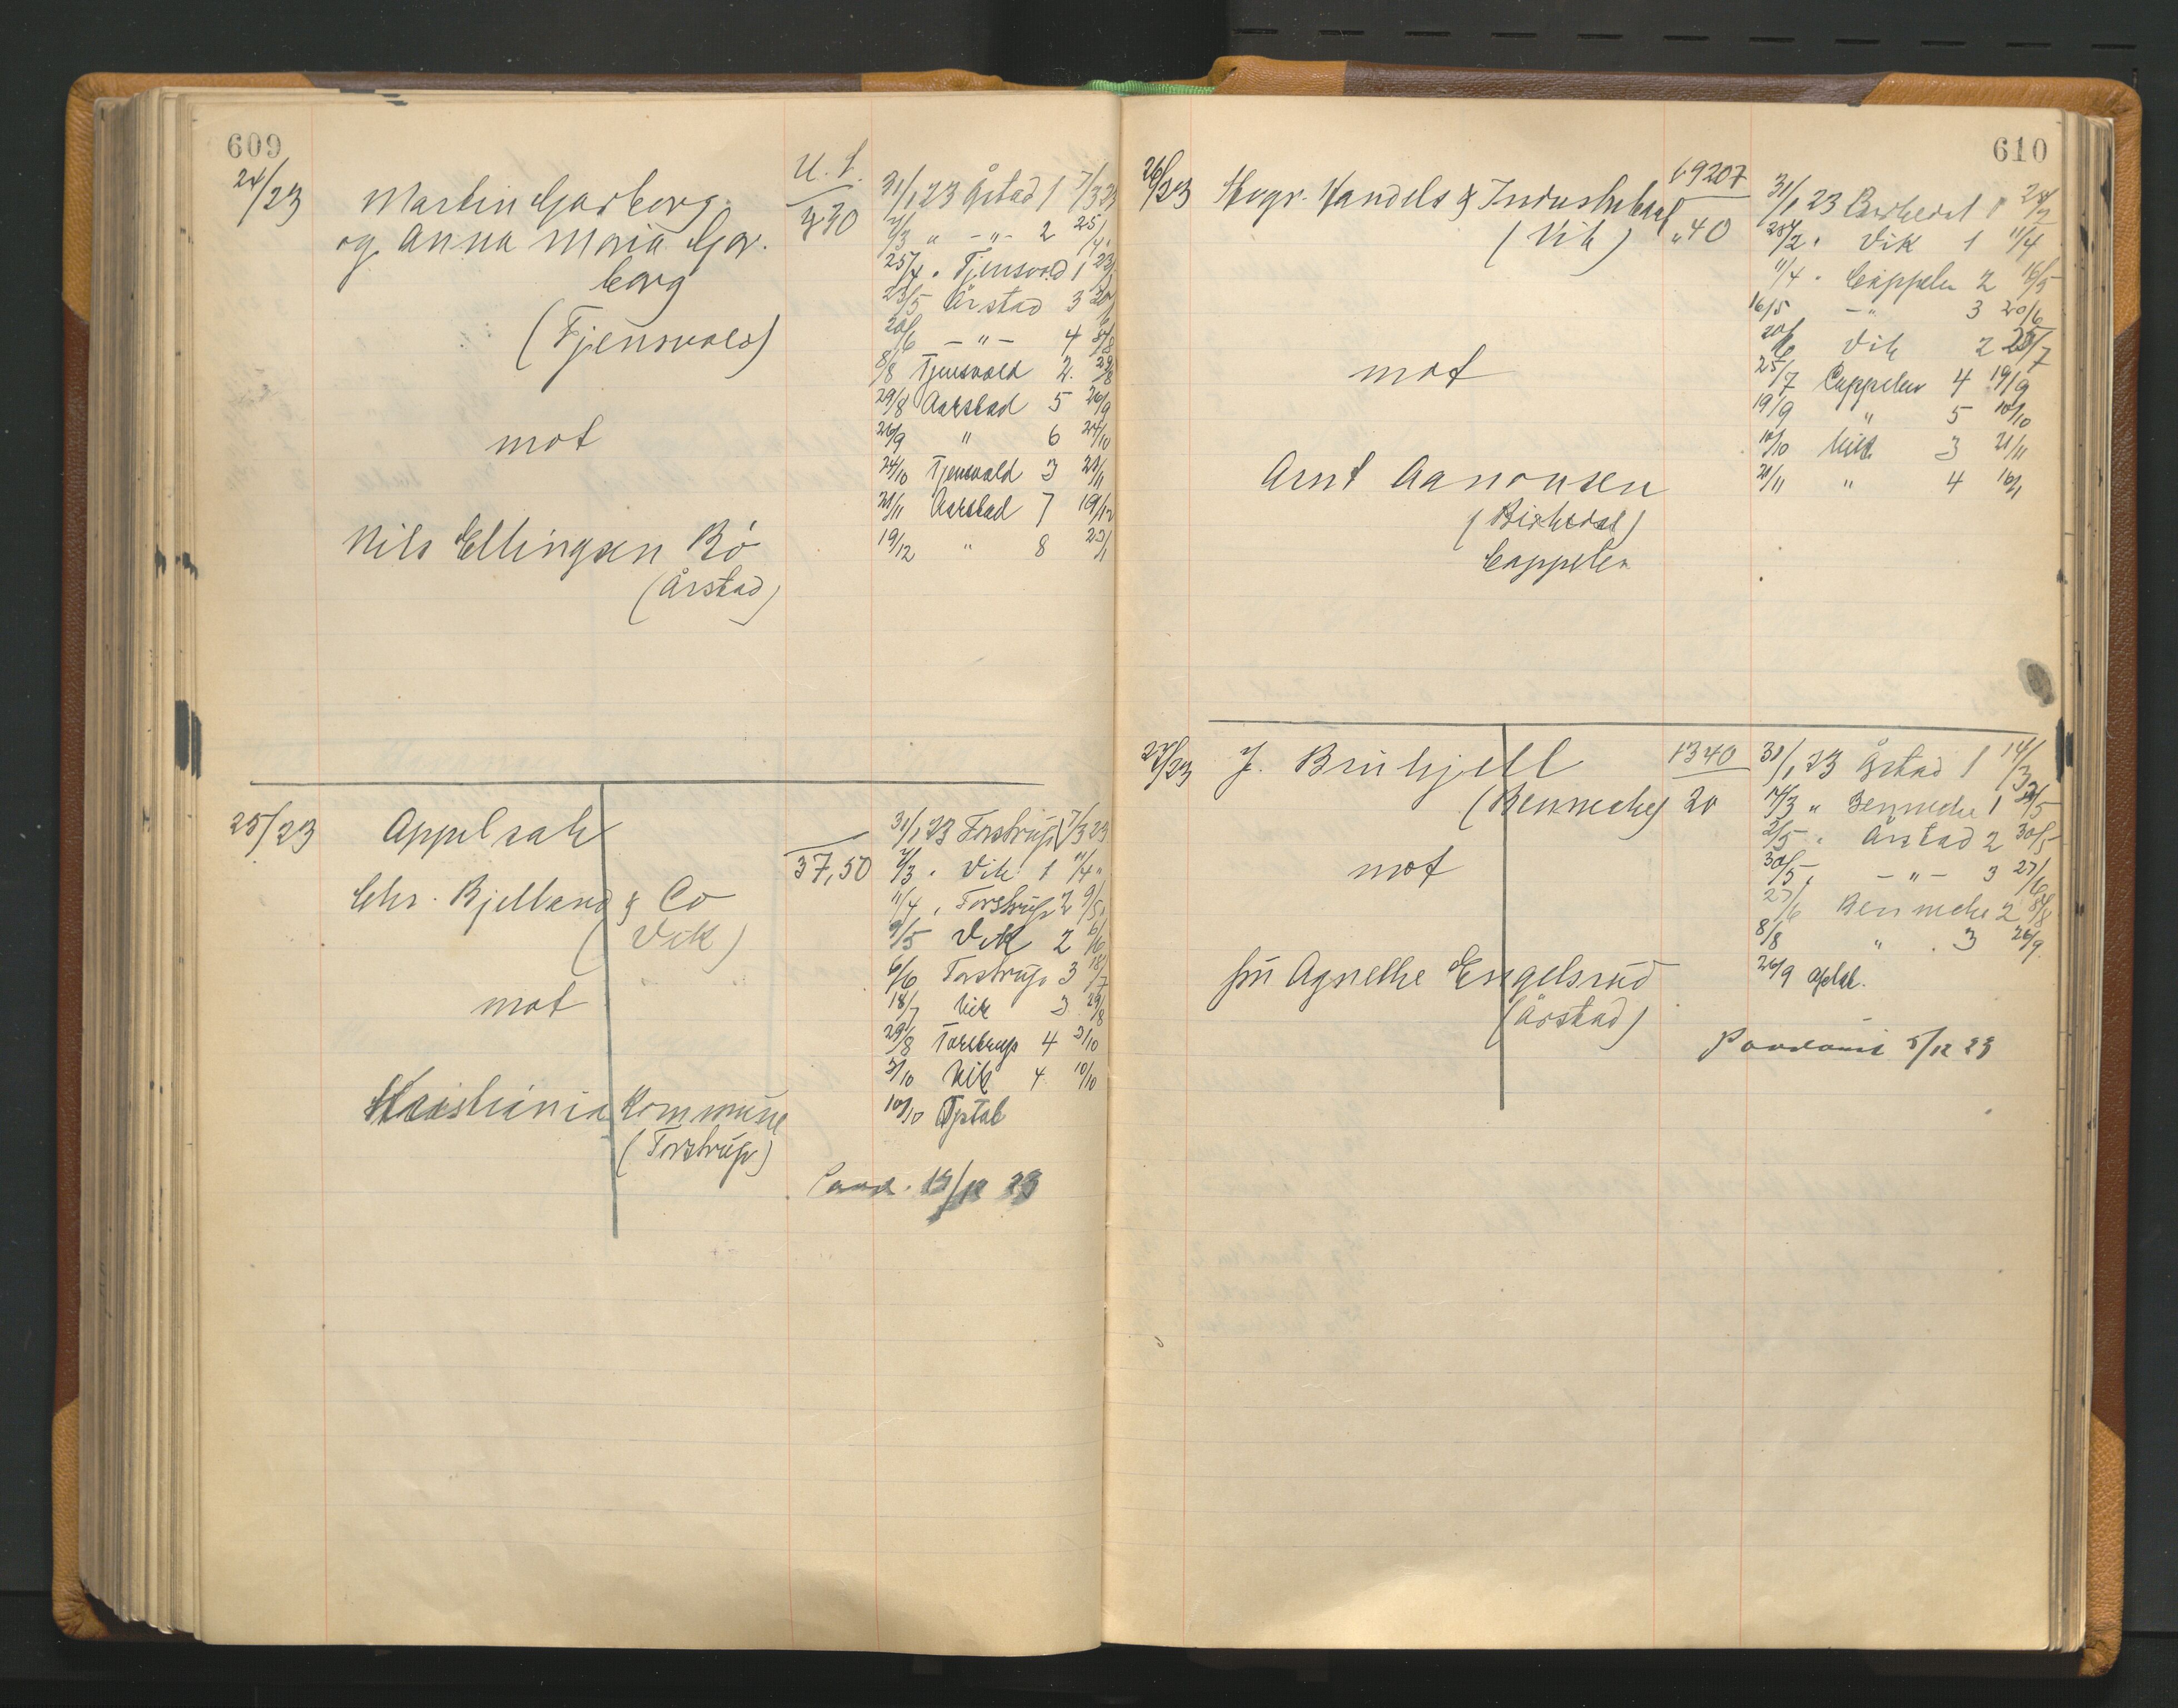 609
24/23
Martin Garborg
og Anna Maria Gar-
borg
(Tjensvold)
mot
Nils Ellingsen Bö
(Årstad)
U. S.
31/1 23 Årstad 1 7/3 23
7/3 " -"- 2 25/4
25/4 " Tjensvold 1 23/5
23/5 Årstad 3 20/6
20/6 -"- 4 8/8
8/8 Tjensvold 2. 29/8
29/8 Aarstad 5 26/9
26/9 " 6 24/10
24/10 Tjensvold 3 21/11
21/11 Aarstad 7 19/12
19/12 " 8
25/23
Appelsak
Chr. Bjelland & Co
(Vik)
mot
Kristiania Kommune
(Torstrup)
37,50
31/1 23 Torstrup 1 7/3 23
7/3 " Vik 1 11/4 "
11/4 " Torstrup 2 9/5
9/5 Vik 2 6/6
6/6 Torstrup 3 18/7
18/7 Vik 3 29/8
29/8 Torstrup 4 3/10
3/10 Vik 4 10/10
10/10 Optat
Paad. 13/12 23
610
26/23
Norges Handels & Industribank
(Vik)
mot
Arnt Aanonsen
(Birkedal)
Cappelen
69207
" 40
31/1 23 Birkedal 1
" Vik 1 11/4
11/4 " Cappelen 2 16/5
16/5 -"- 3 20/6
20/6 Vik 2 25/7
25/7 Cappelen 4 19/9
19/9 " 5 10/10
10/10 Vik 3 21/11
21/11 " 4 16/1
27/23
J. Brukjell
(Benneche)
mot
fru Agnethe Engelsrud
(Årstad)
1340
20
31/1 23 Årstad 1 14/3
14/3 " Benneche 1 2/5
2/5 " Årstad 2 30/5
30/5 " -"- 3 27/6
27/6 Benneche 2 8/8
8/8 " 3 26/9
26/9 optat.
Paadömt 5/12 23